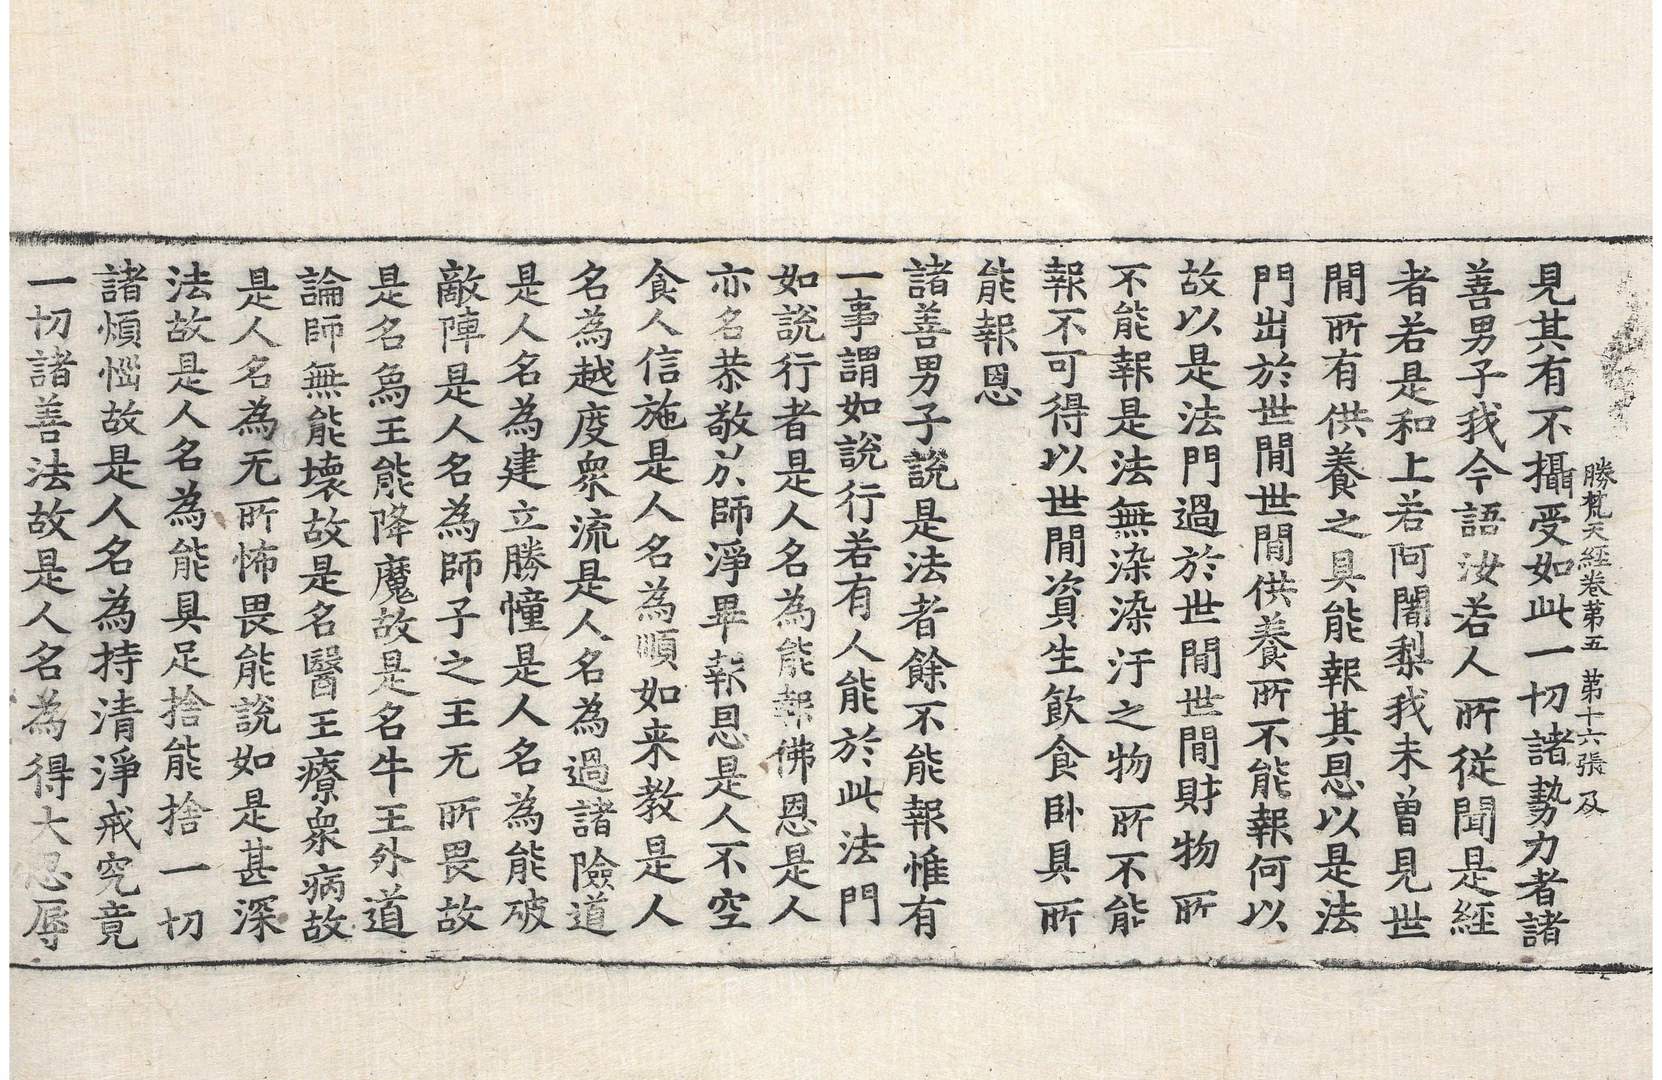 勝梵天經卷第五 第十六張 及
見其有不攝受如此一切諸勢力者諸
善男子我今語汝若人所從聞是經
者若是和上若阿闍梨我未曾見世
閒所有供養之具能報其恩以是法
門出於世閒世閒供養所不能報何以
故以是法門過於世閒世閒財物所
不能報是法無染染汙之物所不能
報不可得以世閒資生飲食卧具所
能報恩
諸善男子說是法者餘不能報惟有
一事謂如說行若有人能於此法門
如說行者是人名為能報佛恩是人
亦名恭敬於師淨畢報恩是人不空
食人信施是人名為順如来教是人
名為越度眾流是人名為過諸險道
是人名為建立勝幢是人名為能破
敵陣是人名為師子之王无所畏故
是名為王能降魔故是名牛王外道
論師無能壞故是名醫王療眾病故
是人名為无所怖畏能說如是甚深
法故是人名為能具足捨能捨一切
諸煩惱故是人名為持清淨戒究竟
一切諸善法故是人名為得大忍辱